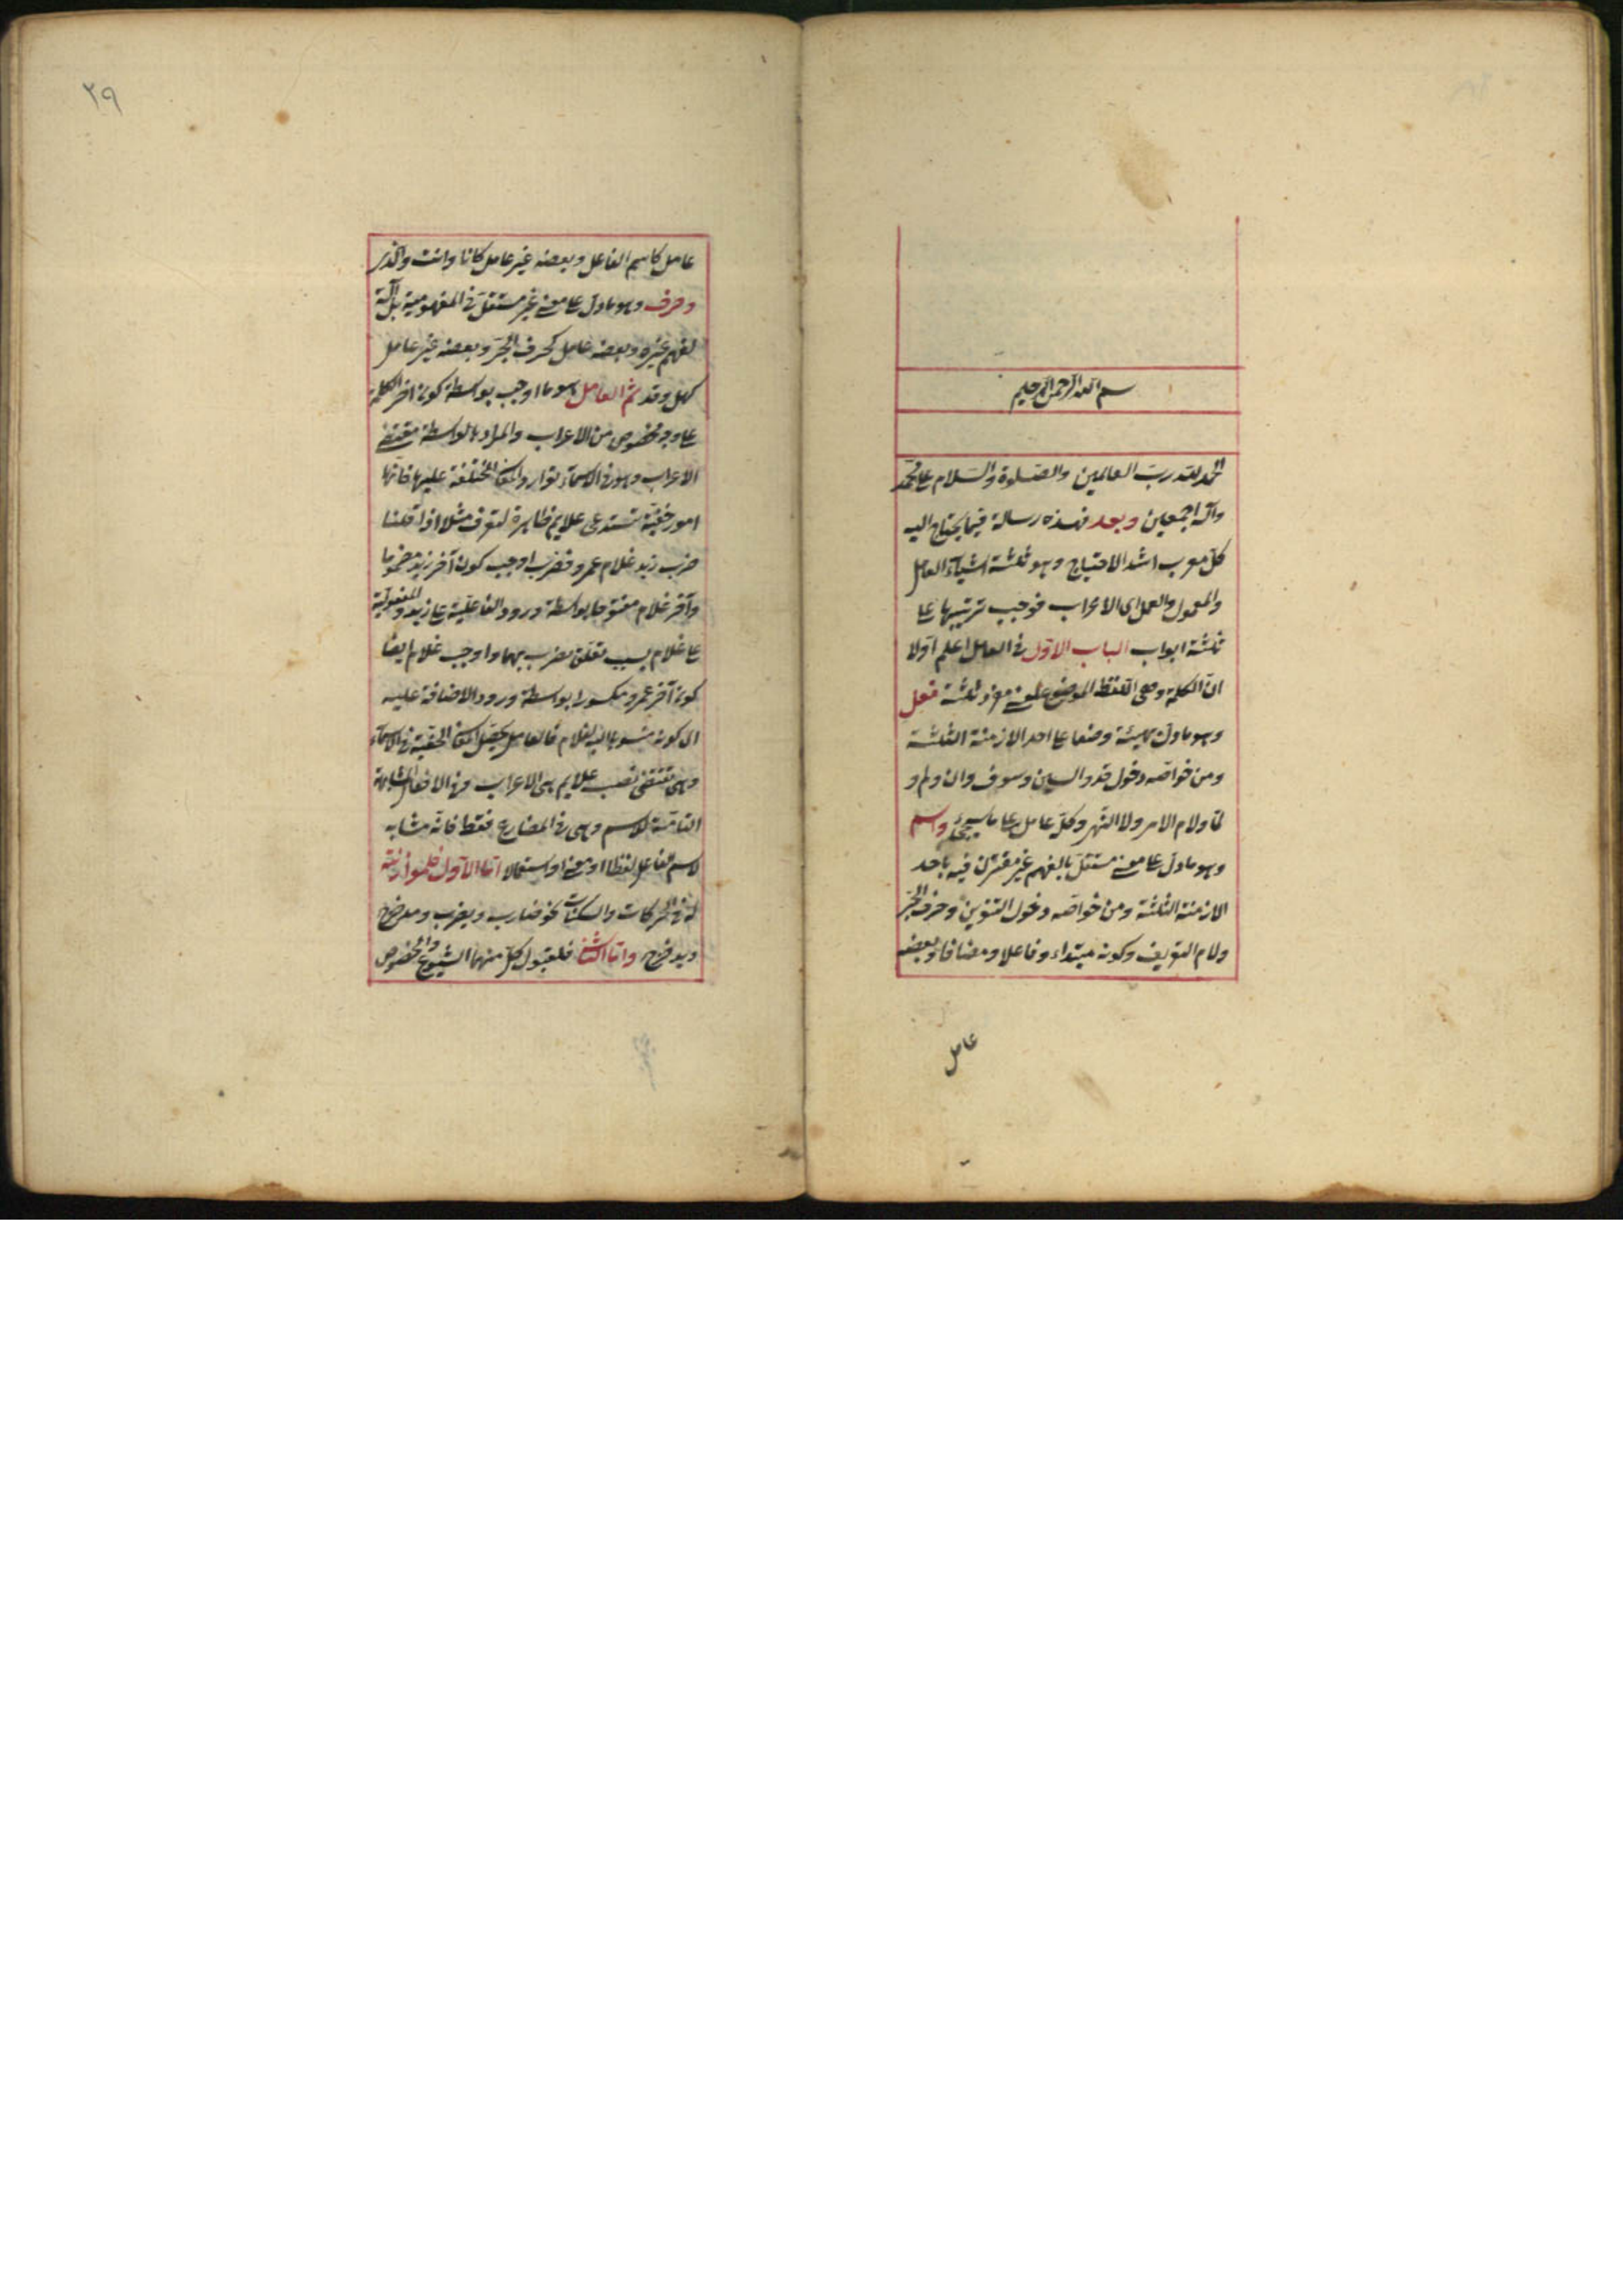 بسم الله الرحمن الرحيم
الحمد لله رب العالمين والصلوة والسلام على محمد
وآله اجمعين وبعد فهذه رسالة فيما يحتاج اليه
كل معرب اشد الاحتياج وهو ثلثة اشياء العامل
والمعمول والعمل اى الاعراب فوجب ترتيبها على
ثلثة ابواب الباب الاول فى العامل اعلم اولا
ان الكلمة وهى اللفظ الموضوع لمعنى مفرد ثلثة فعل
وهو ما دل بهيئته وضعا على احد الازمنة الثلثة
ومن خواصه دخول قد والسين وسوف وان ولم و
لما ولام الامر ولا النهى وكل عامل على ما سيجئ واسم
وهو ما دل على معنى مستقل بالفهم غير مقترن فيه باحد
الازمنة الثلثة ومن خواصه دخول التنوين وحرف الجر
ولام التعريف وكونه مبتداء وفاعلا ومضافا وبعضه
عامل
٢٩
عامل كاسم الفاعل وبعضه غير عامل كانا وانت والذى
وحرف وهو ما دل على معنى غير مستقل فى المفهومية بل آلة
لفهم غيره وبعضه عامل كحرف الجر وبعضه غير عامل
كهل وقد ثم العامل هو ما اوجب بواسطة كون اخر الكلمة
على وجه مخصوص من الاعراب والمراد بالواسطة مقتضى
الاعراب وهو فى الاسماء توارد المعانى المختلفة عليها فانها
امور خفية تستدعى علايم ظاهرة لتعرف مثلا اذا قلنا
ضرب زيد غلام عمرو فضرب اوجب كون آخر زيد مضموما
وآخر غلام مفتوحا بواسطة ورود الفاعلية على زيد والمفعولية
على غلام بسبب تعلق ضرب بهما واوجب غلام ايضا
كون آخر عمرو مكسورا بواسطة ورود الاضافة عليه
اى كونه منسوبا اليه لغلام فالعامل يحصل المعانى الخفية فى الاسماء
وهى تقتضى نصب علايم هى الاعراب وفى الافعال المشابهة
التامة للاسم وهى فى المضارع فقط فانه مشابه
لاسم الفاعل لفظا ومعنى واستعمالا اما الاول فلموازنته
له فى الحركات والسكنات نحو ضارب ويضرب ومدحرج
ويدحرج واما الثانى فلقبول كل منهما الشيوع والخصوص